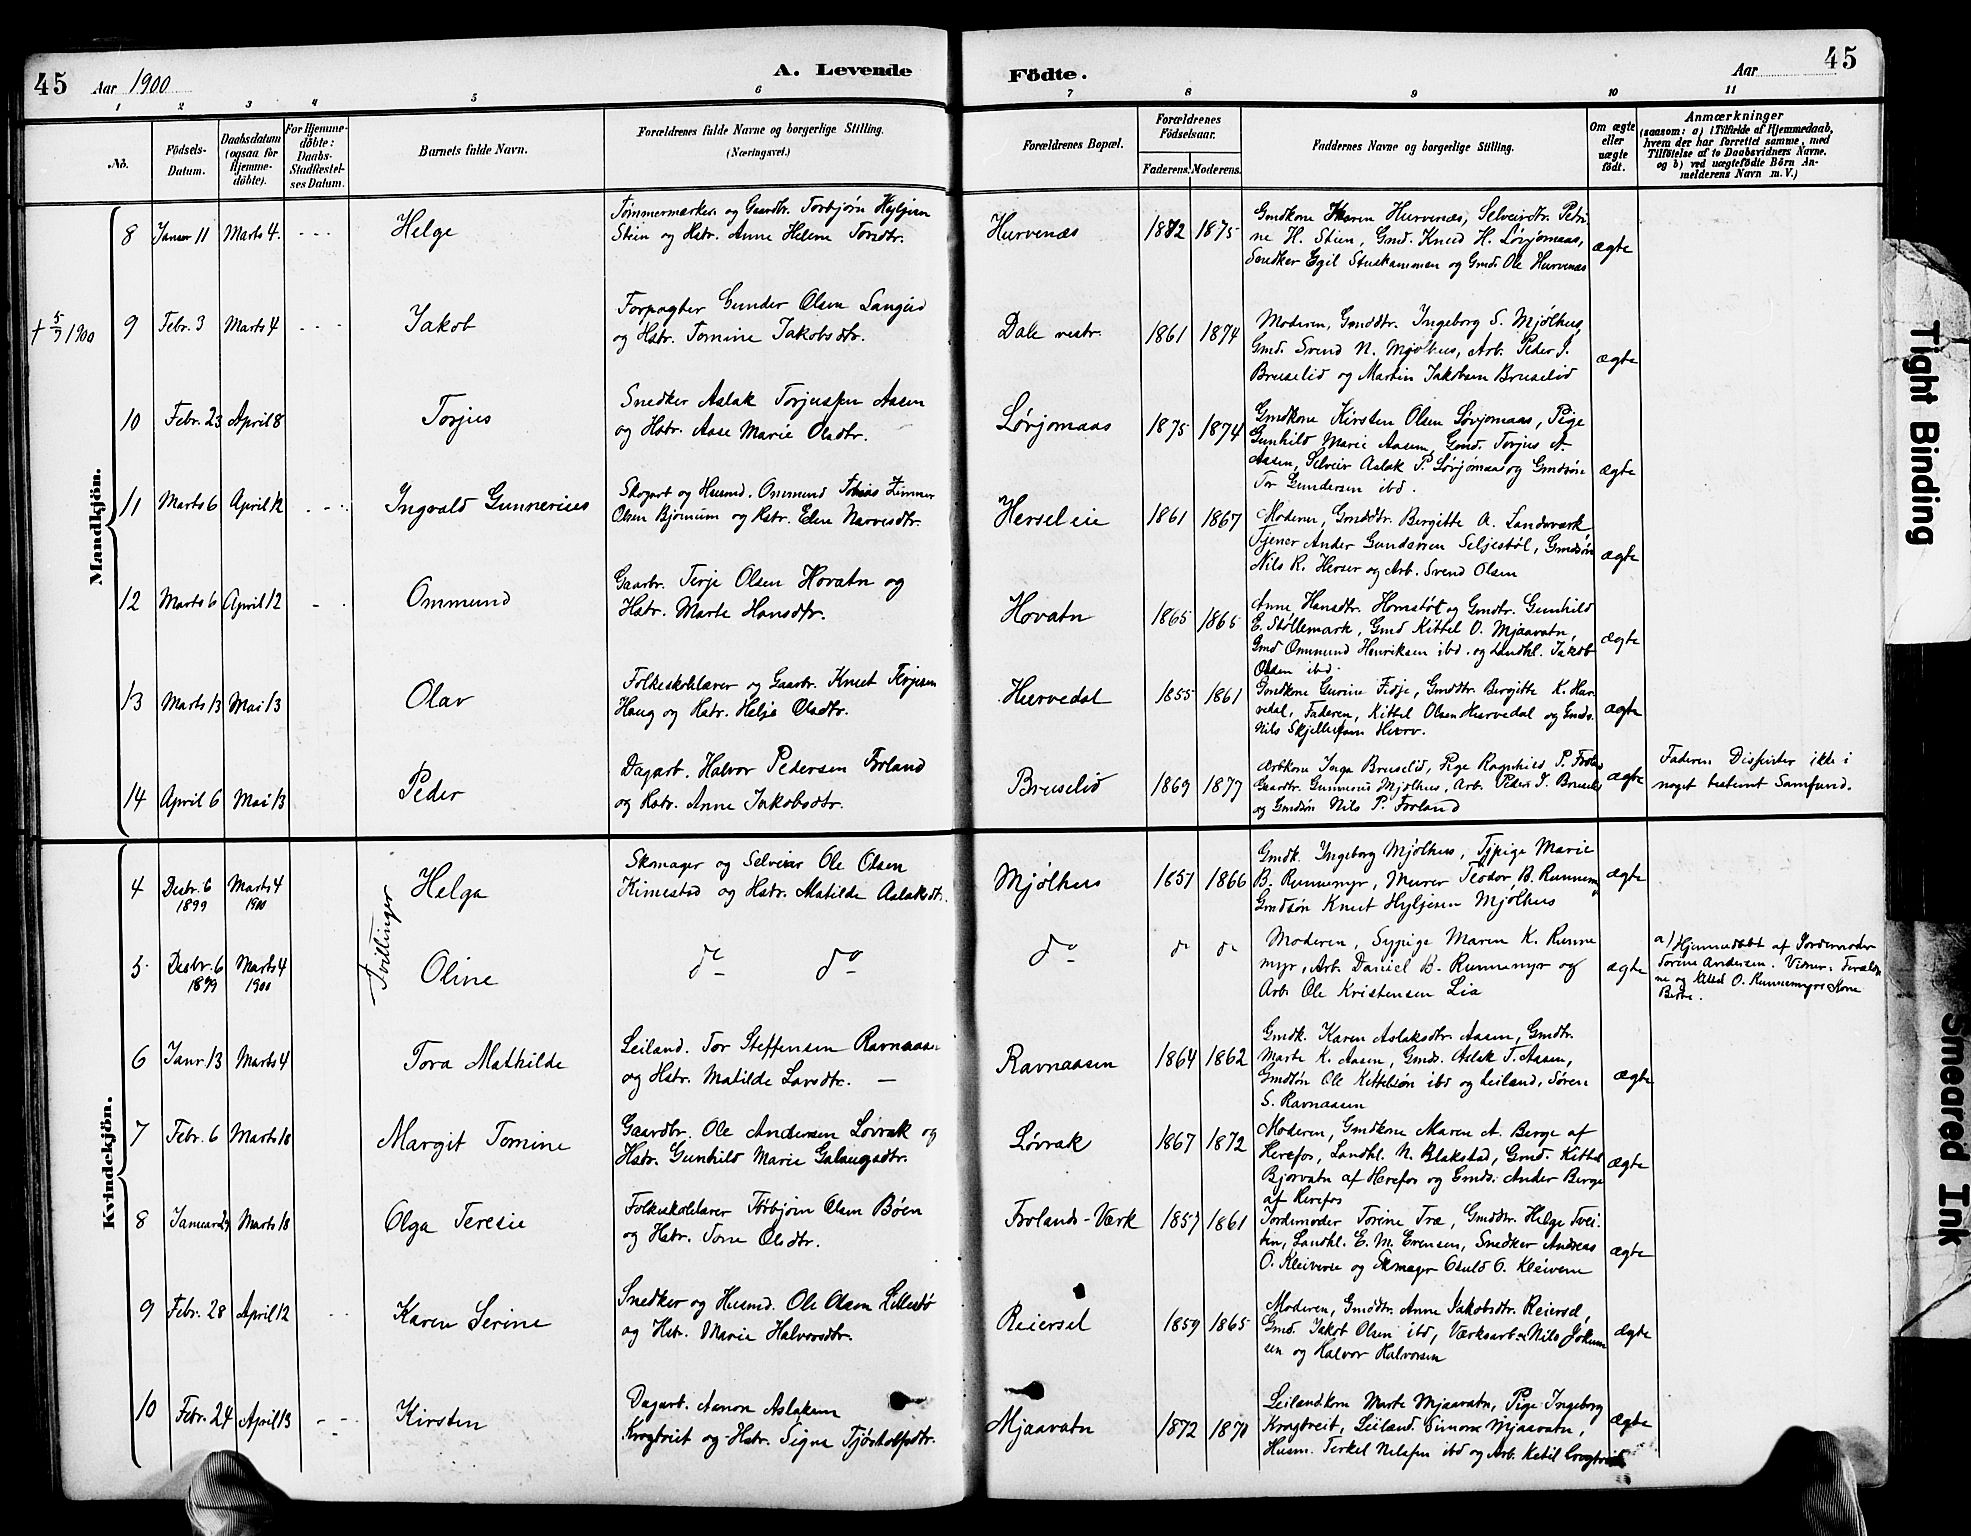 45 Aar 1900 A. Levende Födte. Aar 45
1 2 3 4 5 6 7 8 9 10 11
No.
Födsels-Datum.
Daabsdatum (ogsaa for Hjemme-döbte).
For Hjemme-döbte: Daabs-Stadfæstel-ses Datum.
Barnets fulde Navn.
Forældrenes fulde Navne og borgerlige Stilling.
(Næringsvei.)
Forældrenes Bopæl.
Forældrenes Födselsaar.
Faderens. Moderens.
Faddernes Navne og borgerlige Stilling.
Om ægte eller uægte födt.
Anmærkninger
(saasom: a) i Tilfælde af Hjemmedaab,
hvem der har forrettet samme, med
Tilföielse af to Daabsvidners Navne.
og b) ved uægtefödte Börn An-
melderens Navn m. V.)
Mandkjön.
8 Januar 11 Marts 4. Helge
Tømmermærker og Gaardbr. Torbjørn Hyljesen
Stien og Hstr. Anne Helene Tordtr.
Hurvenæs 1872 1875
Gmdkone Karen Hurvenæs, Selveirdtr. Petri-
ne H. Stien, Gmd. Knud H. Lørjomaas,
Snedker Egil Stuekammen og Gmds. Ole Hurvenæs
ægte
† 5/7 1900 9 Febr. 3 Marts 4 Jakob
Forpagter Gunder Olsen Langeid
og Hstr. Tomine Jakobsdtr.
Dale vestr. 1861 1874
Moderen, Gmddtr. Ingeborg S. Mjølhus,
Gmd. Svend N. Mjølhus, Arb. Peder J.
Bruselid og Martin Jakobsen Bruselid
ægte
10 Febr. 23 April 8 Torjus
Snedker Aslak Torjussen Aasen
og Hstr. Aase Marie Olsdtr.
Lørjomaas 1875 1874
Gmdkone Kirsten Olsen Lørjomaas, Pige
Gunhild Marie Aasen, Gmd. Torjus A.
Aasen, Selveir Aslak P. Lørjomaas og Gmdsøn
Tor Gundersen ibd.
ægte
11 Marts 6 April 12 Ingvald Gunnerius
Skogarb og Husmd. Ommund Tobias Zimmer
Olsen Bjornum og Hstr. Elen Narvesdtr.
Herseleie 1861 1867
Moderen, Gmddtr. Bergitte A. Landsværk
Tjener Ander Gundersen Seljestøl, Gmdsøn
Nils R. Herser og Arb. Svend Olsen
ægte
12 Marts 6 April 12 Ommund
Gaarbr. Terje Olsen Hovatn og
Hstr. Marte Hansdtr.
Hovatn 1865 1865
Anne Hansdtr. Homstøl og Gmdtr. Gunhild
E. Støllemark, Gmd Kittel O. Mjaavatn,
Gmd Ommund Henriksen ibd. og Landhl. Jakob
Olsen ibd.
ægte
13 Marts 13 Mai 13 Olav
Folkeskolelærer og Gaarbr. Knut Terjesen
Haug og Hstr. Helje Olsdtr.
Hurvedal 1855 1861
Gmdkone Gurine Fidje, Gmddtr. Bergitte K. Hur-
vedal, Faderen, Kittel Olsen Hurvedal og Gmds.
Nils
ægte
14 April 6 Mai 13 Peder
Dagarb. Halvor Pedersen Froland
og Hstr. Anne Jakobsdtr.
Bruselid 1869 1877
Arbkone Inga Bruselid, Pige Ragnhild P. Froland
Gaardtr. Gunnerius Mjølhus, Arb. Peder J. Bruselid
og Gmdsøn Nils P. Forland
ægte
Faderen Dissenter ikke i
noget bestemt Samfund.
Kvindekjön.
4 Desbr. 6 1899 Marts 4 1900 Tvillinger Helga
Skomager og Selveier Ole Olsen
Kimestad og Hstr. Matilde Aslaksdtr.
Mjølhus 1857 1866
Gmdk. Ingeborg Mjølhus, Tjpige Marie
B. Runnemyr, Murer Teodor B. Runnem.
Gmdsøn Knut Hyljesen Mjølhus
ægte
5 Desbr. 6 1899 Marts 4 1900 Oline
do do do do do
Moderen, Sypige Maren K. Runne
myr, Arb. Daniel B. Runnemyr og
Arb. Ole Kristensen Lia
ægte
a) Hjemmedøbt af Jordemoder
Torine Andersen. Vidner: Foræld
ne og Kittel O. Runnemyrs Kone
Berte.
6 Janr 13 Marts 4 Tora Mathilde
Leiland. Tor Steffensen Ravnaasen
og Hstr. Matilde Larsdtr. —
Ravnaasen 1864 1862
Gmdk. Karen Aslaksdtr Aasen, Gmdtr.
Marte K. Aasen, Gmds. Aslak T. Aasen,
Gmdsøn Ole Kittelsøn ibd og Leiland, Søren
S. Ravnaasen
ægte
7 Febr. 6 Marts 18 Margit Tomine
Gaardbr. Ole Andersen Løvrak og
Hstr. Gunhild Marie Galaugsdtr.
Løvrak 1867 1872
Moderen, Gmdkone Maren A. Berge af
Herefos, Landhl. N. Blakstad, Gmd. Kittel
Bjorvatn af Herefos og Gmds. Ander Berge
af Herefos
ægte
8 Januar 29 Marts 18 Olga Teresie
Folkeskolelærer Torbjørn Olsen Bøen
og Hstr. Tone Olsdtr.
Frolands-Værk 1857 1861
Jordemoder Torine Træ, Gmddtr. Helge Tvei-
ten, Landhl. E. M. Evensen, Snedker Andreas
O. Kleivene og Skomager Osuld O. Kleivene
ægte
9 Febr. 28 April 12 Karen Serine
Snedker og Husmd. Ole Olsen Lillesø
og Hstr. Marie Halvorsdtr.
Reiersel 1859 1865
Moderen, Gmddtr. Anne Jakobsdtr Reiersel,
Gmd. Jakob Olsen ibd, Værksarb. Nils Jokum
sen og Halvor Halvorsen
ægte
10 Febr. 24 April 13 Kirsten
Dagarb. Aanon Aslaksen
Krogtveit og Hstr. Signe Tjøstolfsdtr.
Mjaavatn 1872 1870
Leilandkon Marte Mjaavatn, Pige Ingeborg
Krogtveit, Leiland. Simon Mjaavatn,
Husm. Terkel Nilssen ibd og Arb. Ketil Krogtveit
ægte
Tight Binding
Smeared Ink